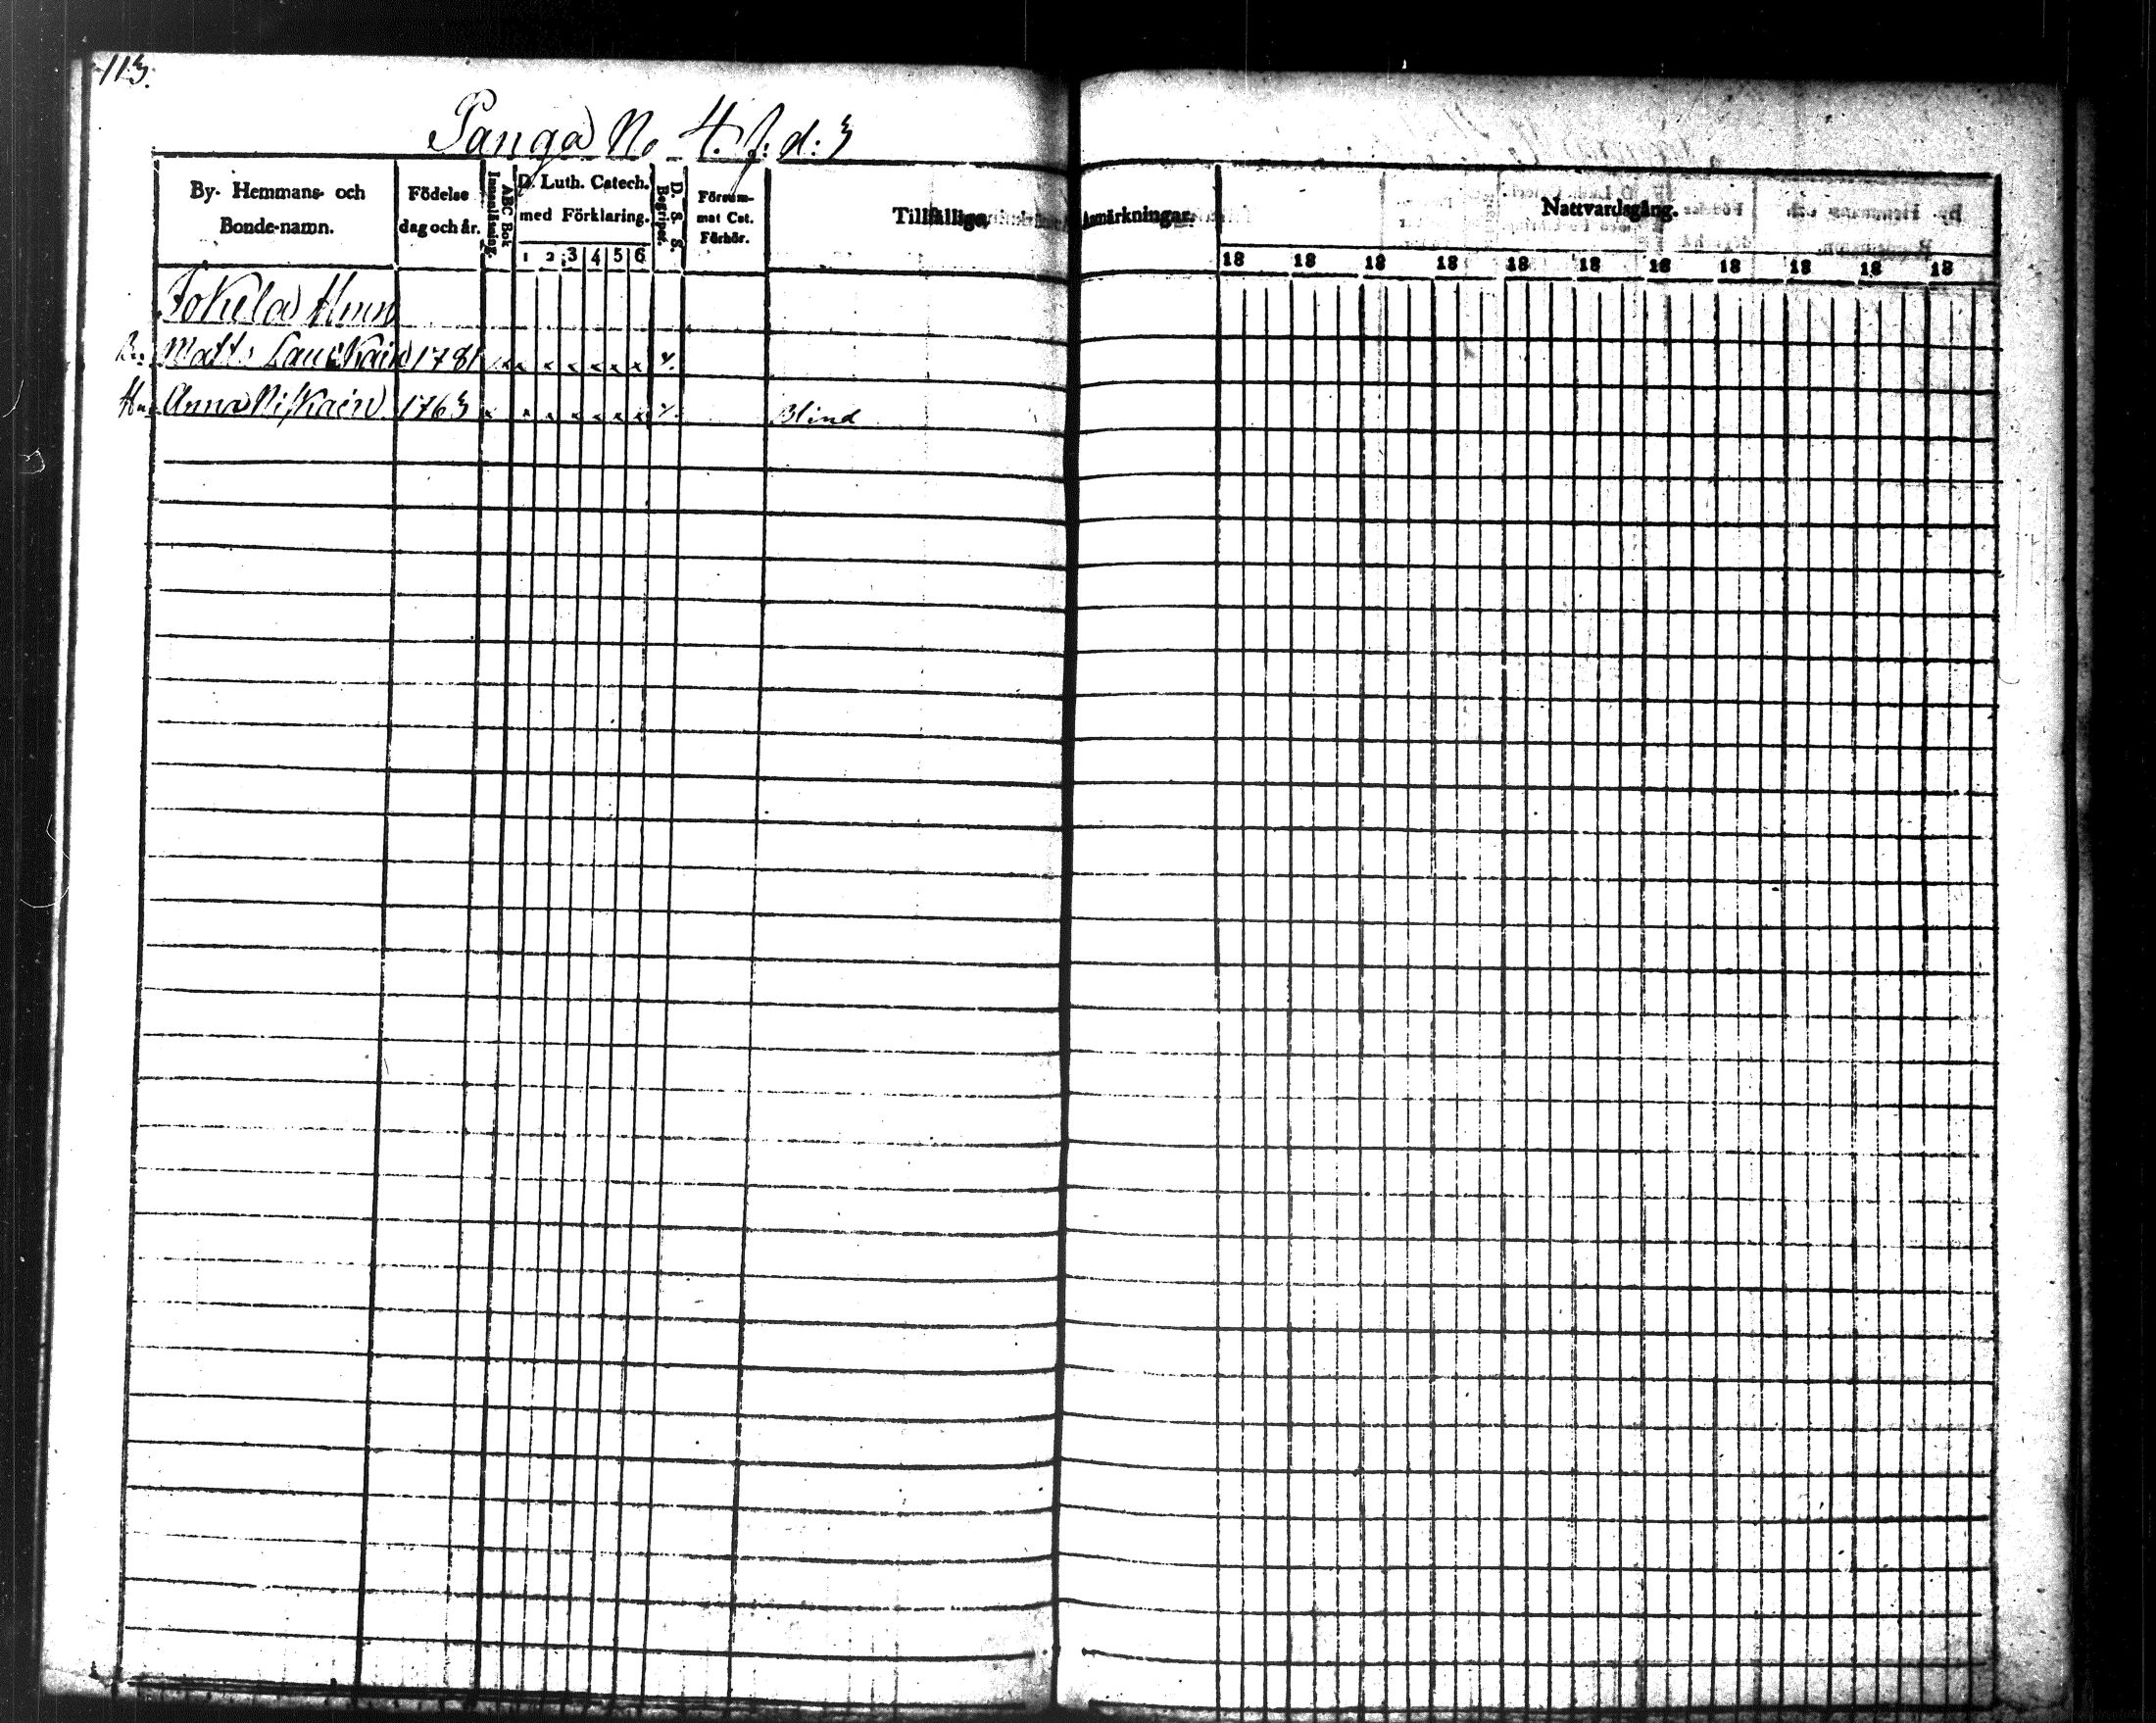 113.
Panga No 4. f. d. 3
By- Hemmans- och Bonde-namn.
Födelse dag och år.
Innanläsning.
ABC Bok
D. Luth. Catech. med Förklaring.
1 2 3 4 5 6
D. S. S. Begripet.
Försummat Cat. Förhör.
Tillfällige Anmärkningar.
Nattvardsgång.
18 18 18 18 18 18 18 18 18 18 18
Jokela Hmn
Matts Lauckain 1781 x x x x x x x
Hu. Anna Niskain 1763 x x x x x x x Blind